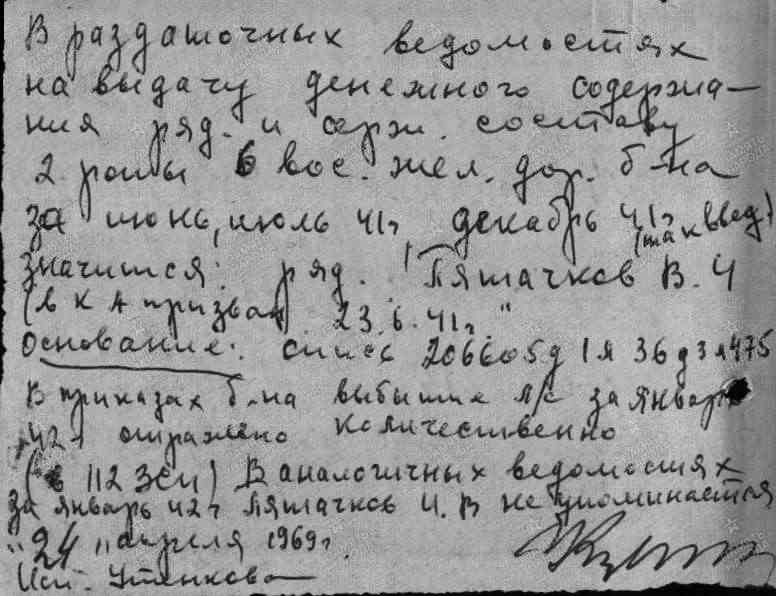 В раздаточных ведомостях
на выдачу денежного содержа-
ния ряд. и серж. составу
2 роты 6 вос. жел. дор. б-на
за июнь, июль 41г декабрь 41г
(так в вед.)
значится: ряд. "Пятачков В. И
(в КА призван 23.6.41г."
Основание: опись 206605д 1я 36 д 3 л 475
В приказах б-на выбытие л/с за январь
42г отражено количественно
(в 112 ЗСП) В аналогичных ведомостях
за январь 42г Пятачков И. В не упоминается
"24" апреля 1969г.
Исп. Утенкова